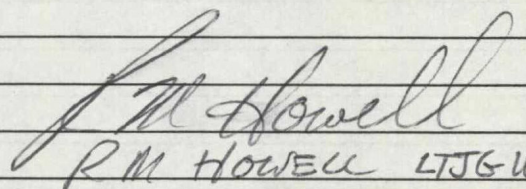 RM Howell
R M HOWELL LTJG U